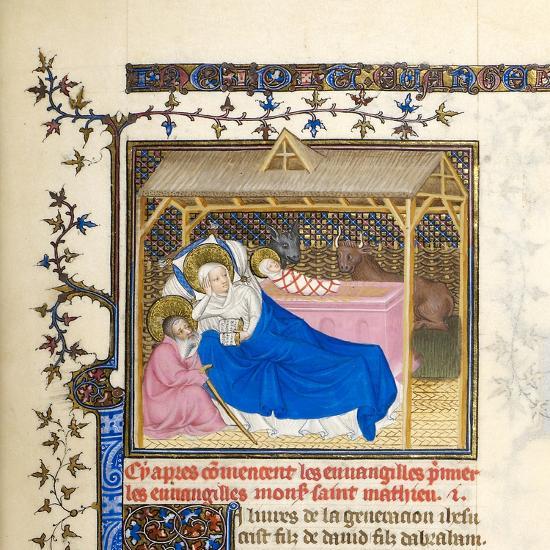 Cy apres cõmencent les euuangilles p̃mier
les euuangilles monsʳ saint mathieu. i.
I liures de la generacion ihesu
crist filz de dauid filz dabraham.